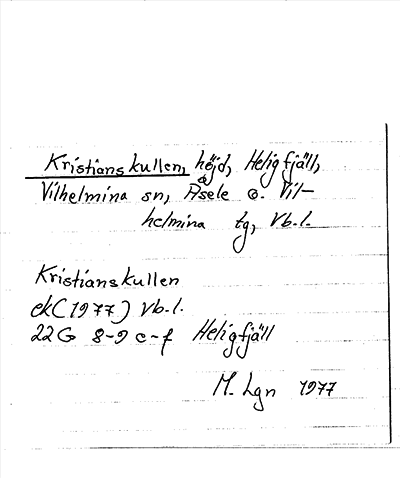 Kristianskullen, höjd, Heligfjäll,
Vilhelmina sn, Åsele o. Vil-
helmina tg, Vb.l.
Kristianskullen
ek(1977) Vb.l.
22G 8-9 c-f Heligfjäll
M. Lgn 1977